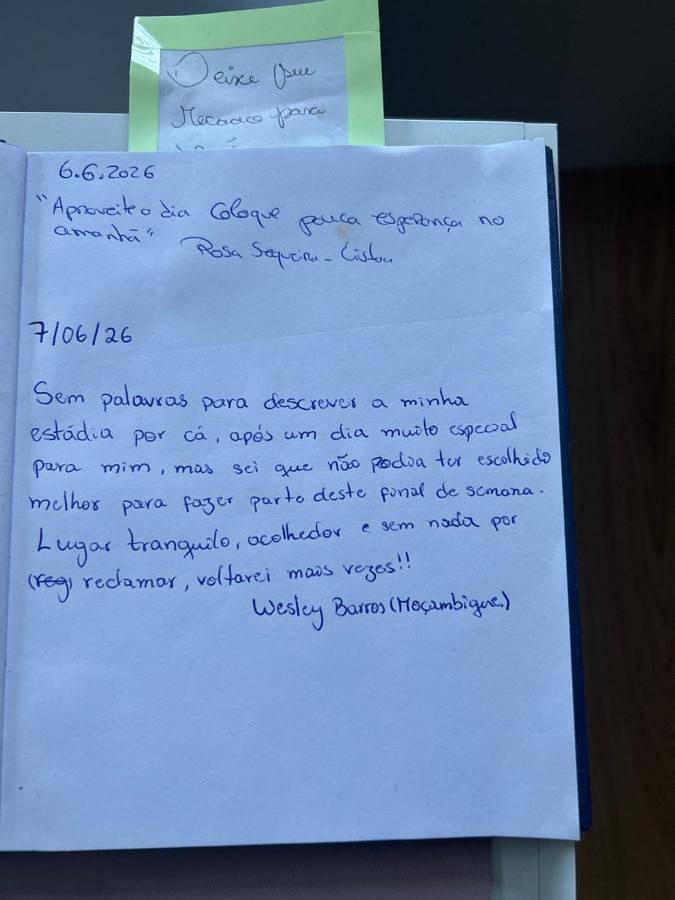 Deixe seu
Recado para
6.6.2026
"Aproveite o dia Coloque pouca esperança no
amanhã"
Rosa Sequeira - Lisboa
7/06/26
Sem palavras para descrever a minha
estádia por cá, após um dia muito especial
para mim, mas sei que não podia ter escolhido
melhor para fazer parte deste final de semana.
Lugar tranquilo, acolhedor e sem nada por
(reg) reclamar, voltarei mais vezes!!
Wesley Barros (Moçambique.)